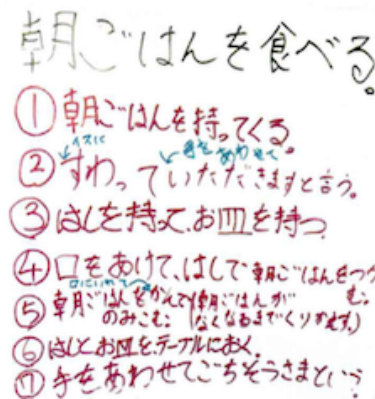 朝ごはんを食べる。
①朝ごはんを持ってくる。
イスに 手をあわせて
②すわっていただきますと言う。
③はしを持って、お皿を持つ
④口をあけて、はしで朝ごはんをつかむ。
口にいれて
⑤朝ごはんをかんでのみこむ。(朝ごはんがなくなるまでくりかえす。)
⑥はしとお皿をテーブルにおく。
⑦手をあわせてごちそうさまという。